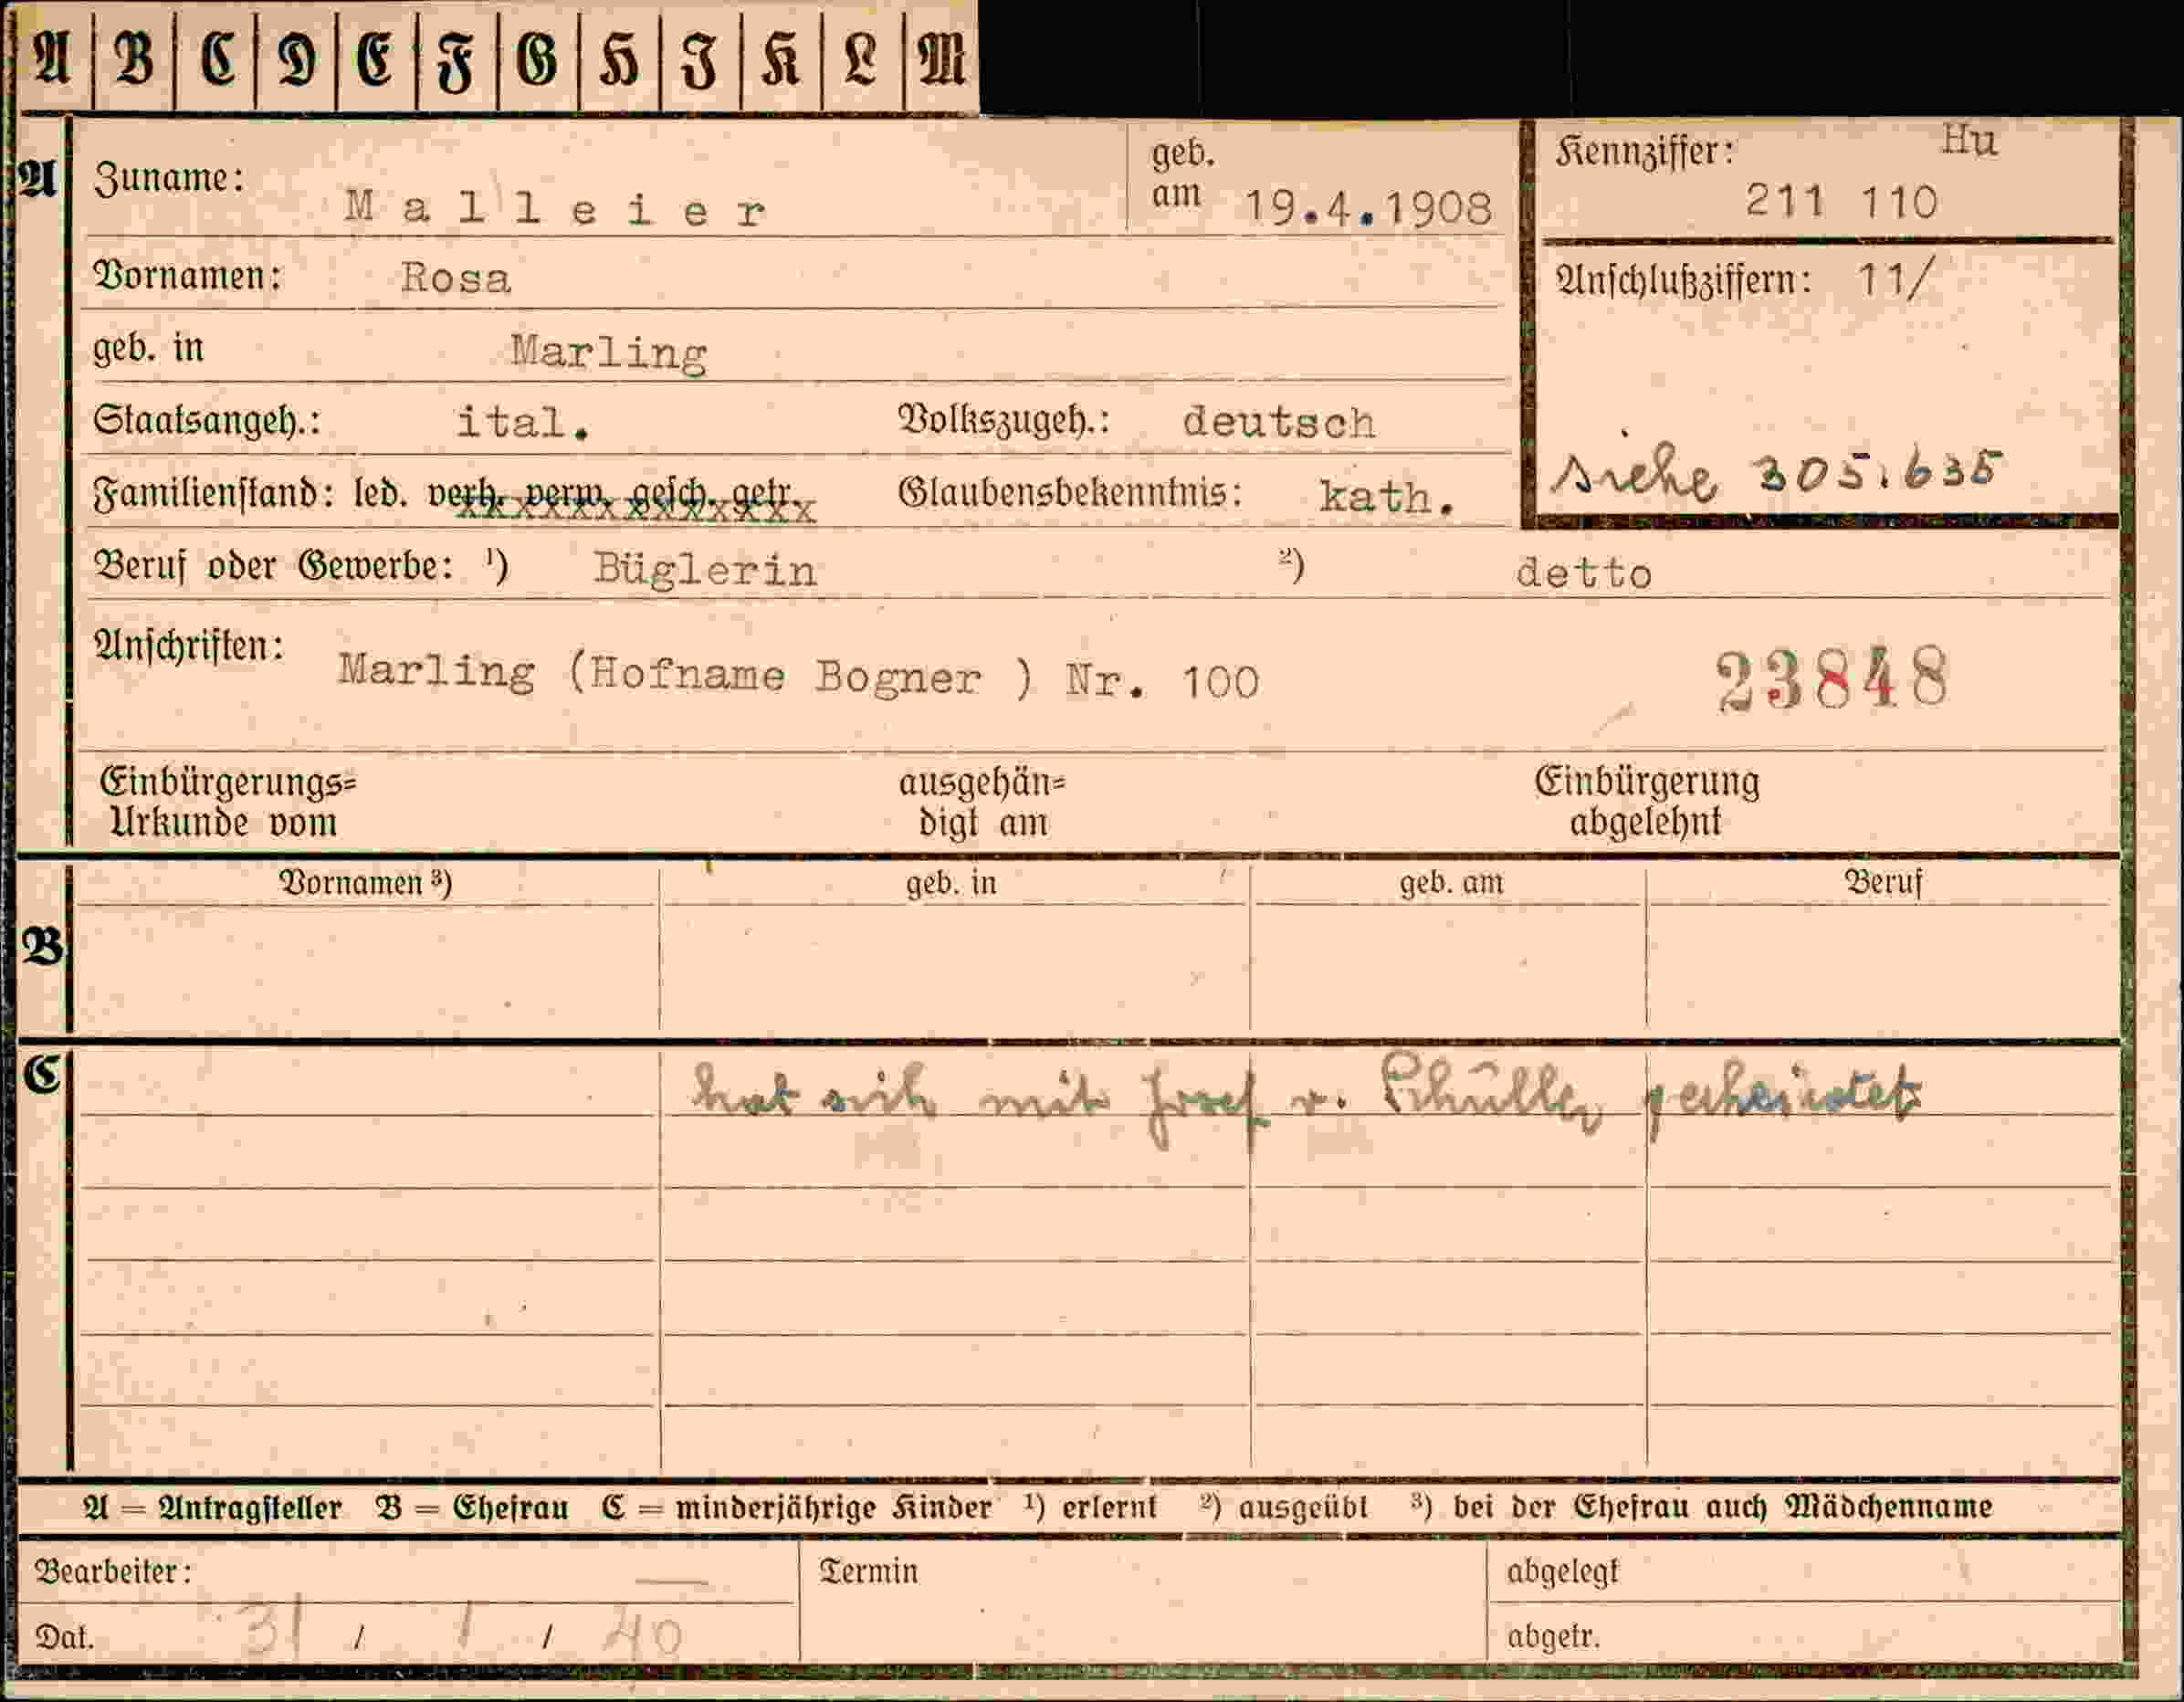 A B C D E F G H I K L M
A Zuname: Malleier geb. am 19.4.1908 Kennziffer: Hu 211 110
Vornamen: Rosa Anschlußziffern: 11/
geb. in Marling
Staatsangeh.: ital. Volkszugeh.: deutsch
siehe 305.635
Familienstand: led. verh. verw. gesch. getr. Glaubensbekenntnis: kath.
Beruf oder Gewerbe: ¹) Büglerin ²) detto
Anschriften: Marling (Hofname Bogner ) Nr. 100 23848
Einbürgerungs= ausgehän= Einbürgerung
Urkunde vom digt am abgelehnt
Vornamen ³) geb. in geb. am Beruf
B
C hat sich mit Josef v. verheiratet
A = Antragsteller B = Ehefrau C = minderjährige Kinder ¹) erlernt ²) ausgeübt ³) bei der Ehefrau auch Mädchenname
Bearbeiter: — Termin abgelegt
Dat. 31 / 1 / 40 abgetr.